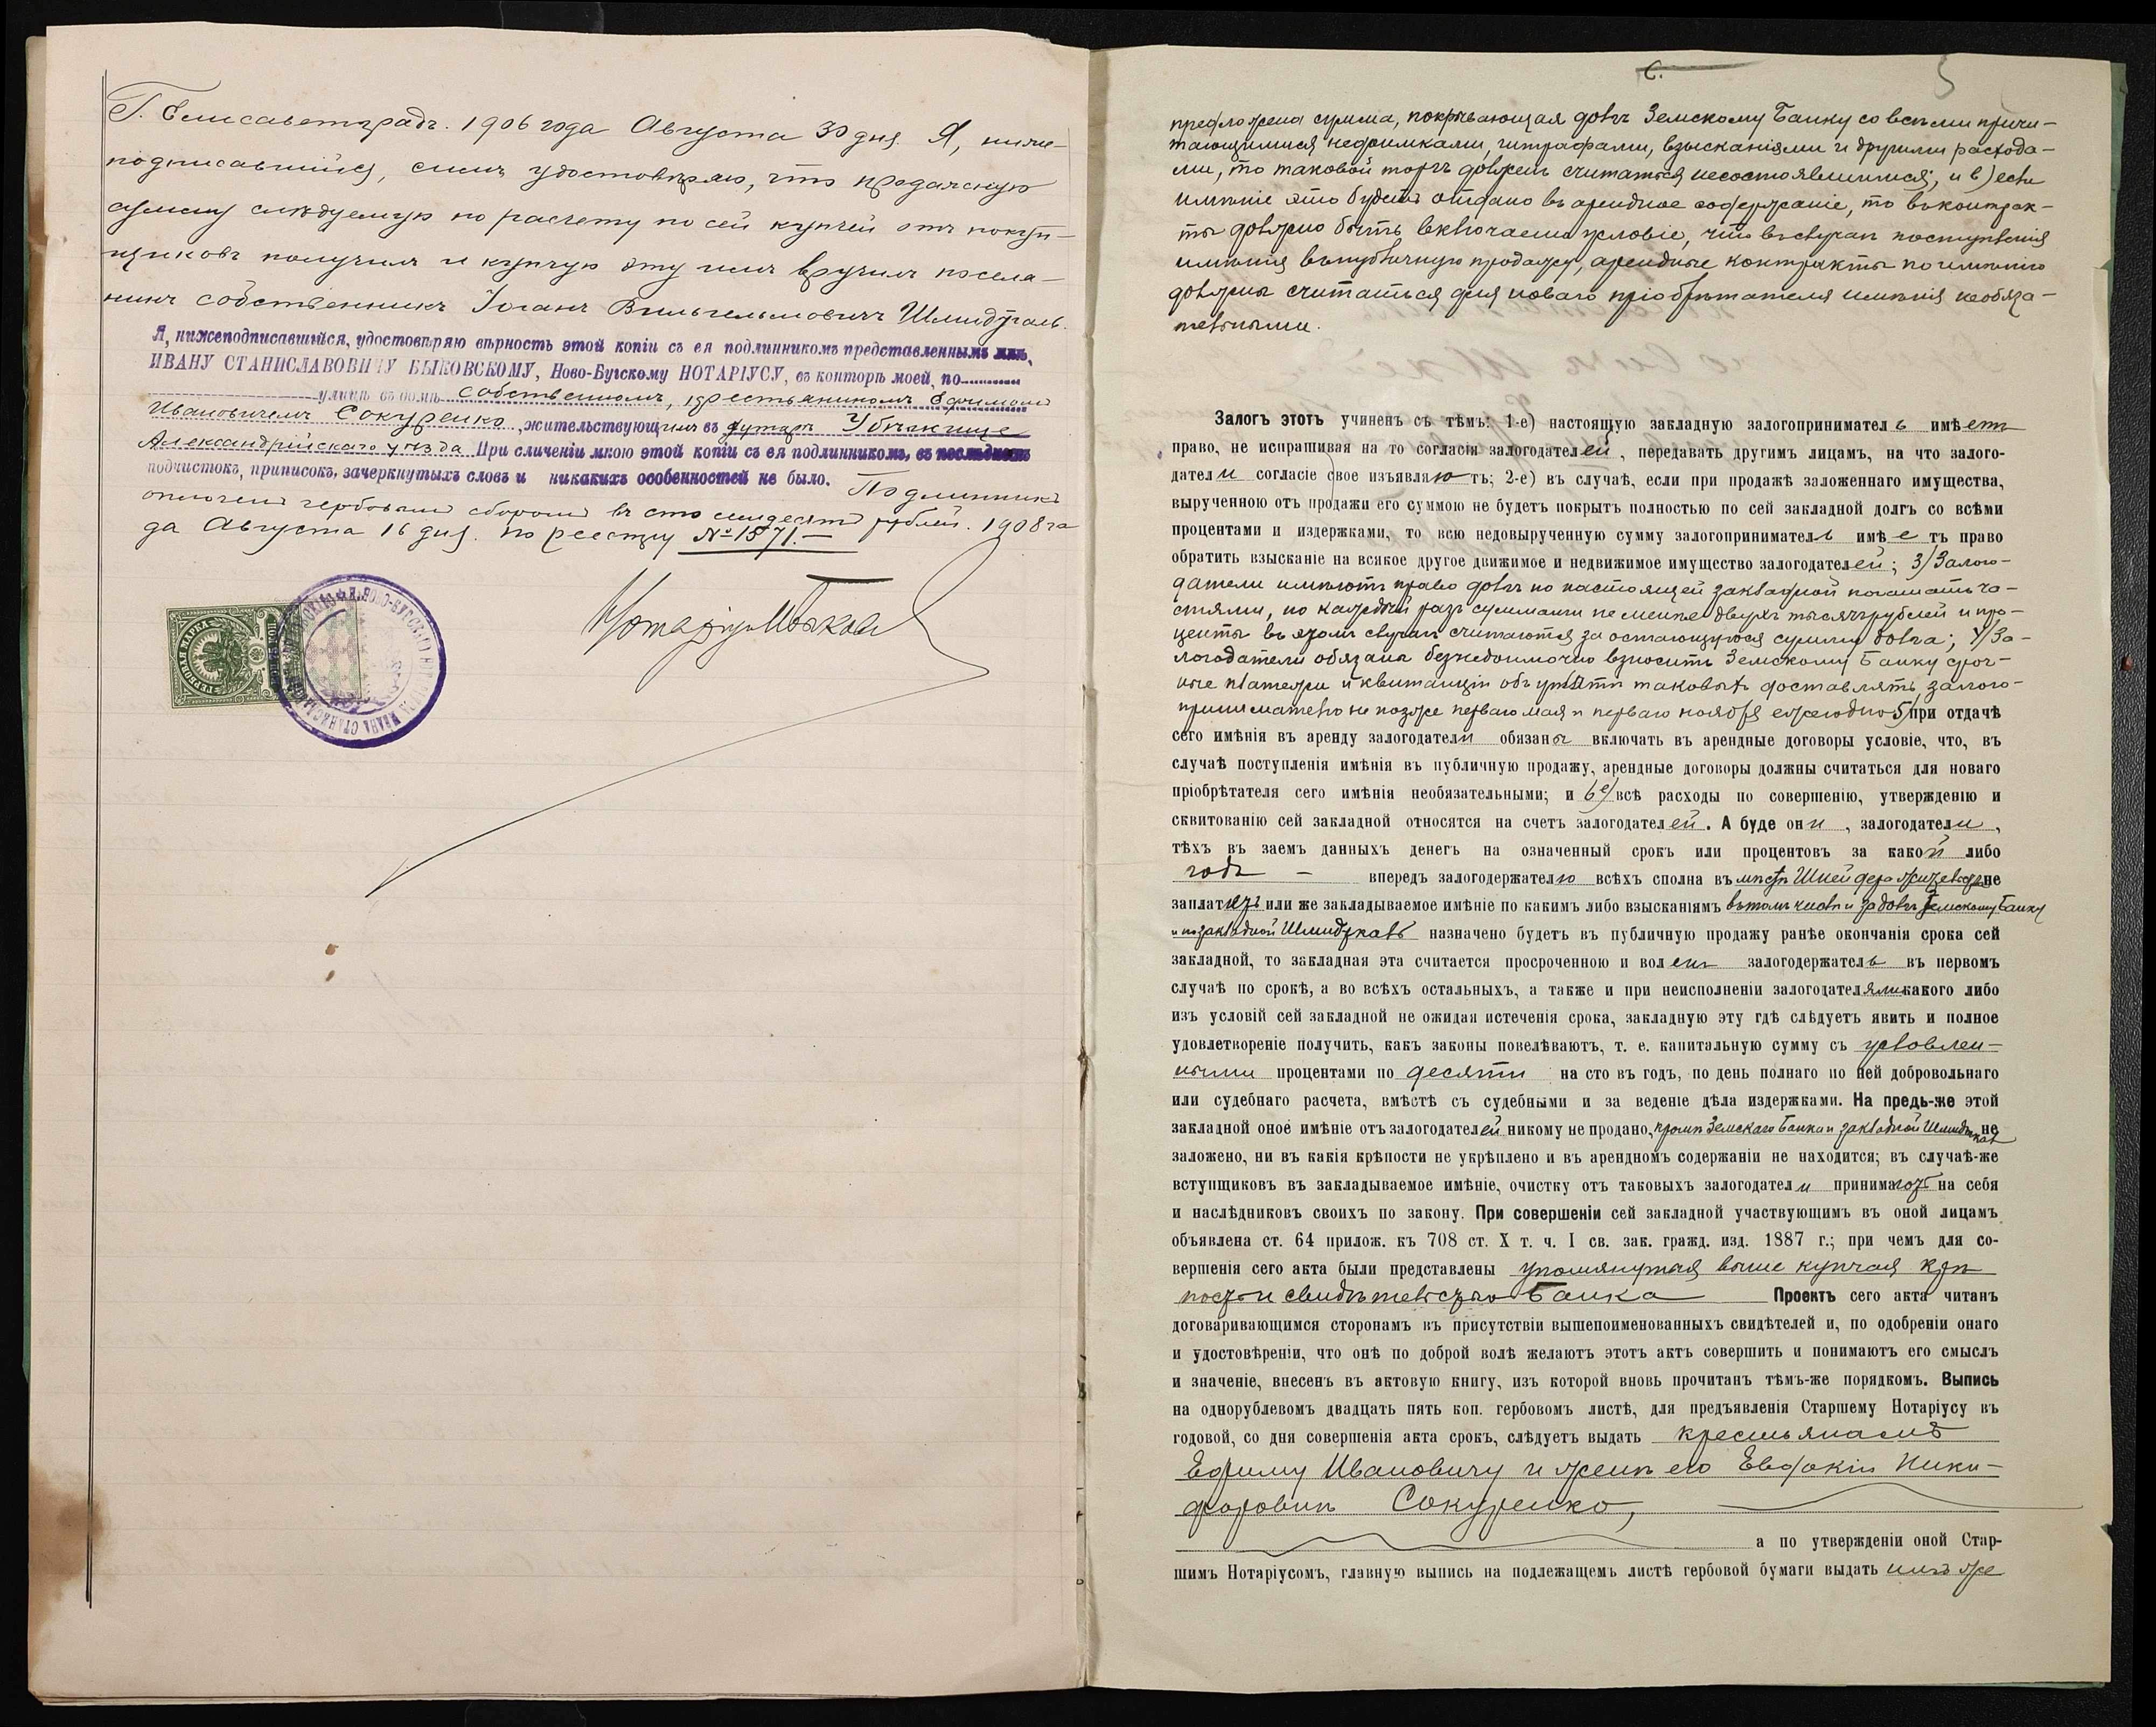 Г. Елисаветградъ. 1906 года Августа 30 дня. Я, ниже-
подписавшійся, симъ удостовѣряю, что продажную
сумму слѣдуемую по расчету по сей купчей отъ покуп-
щиковъ получилъ и купчую эту имъ вручилъ поселя-
нинъ собственникъ Іоганъ Вильгельмовичъ Шмидгаль.
Я, нижеподписавшійся, удостовѣряю вѣрность этой копіи съ ея подлинникомъ представленнымъ мнѣ,
ИВАНУ СТАНИСЛАВОВИЧУ БЫКОВСКОМУ, Ново-Бугскому НОТАРІУСУ, въ конторѣ моей, по
улицѣ въ домѣ собственномъ, крестьяниномъ Ефимомъ
Ивановичемъ Сокуренко, жительствующимъ въ хуторѣ
Александрійскаго уѣзда При сличеніи мною этой копіи съ ея подлинникомъ, въ послѣднемъ
подчистокъ, приписокъ, зачеркнутыхъ словъ и никакихъ особенностей не было. Подлинникъ
оплоченъ гербовымъ сборомъ въ сто семдесятъ рублей. 1908 го
да Августа 16 дня. по реестру № 1571.—
Нотаріусъ Быковскій
ГЕРБОВАЯ МАРКА
75 КОП.
6.
5
предложена сумма, покрывающая долгъ Земскому Банку со всѣми причи-
тающимися недоимками, штрафами, взысканіями и другими расхода-
ми, то таковой торгъ долженъ считаться несостоявшимся; и в) если
имѣніе это будетъ отдано въ арендное содержаніе, то въ контрак-
ты должно быть включаемо условіе, что въ случаѣ поступленія
имѣнія въ публичную продажу, арендные контракты по имѣнію
должны считаться для новаго пріобрѣтателя имѣнія необяза-
тельными.
Залогъ этотъ учиненъ съ тѣмъ: 1-е) настоящую закладную залогоприниматель имѣетъ
право, не испрашивая на то согласія залогодателей, передавать другимъ лицамъ, на что залого-
датели согласіе свое изъявляютъ; 2-е) въ случаѣ, если при продажѣ заложеннаго имущества,
вырученною отъ продажи его суммою не будетъ покрытъ полностью по сей закладной долгъ со всѣми
процентами и издержками, то всю недовырученную сумму залогоприниматель имѣетъ право
обратить взысканіе на всякое другое движимое и недвижимое имущество залогодателей; 3) Залого-
датели имѣютъ право долгъ по настоящей закладной погашать ча-
стями, но каждый разъ суммами не менѣе двухъ тысячъ рублей и про-
центы въ этомъ случаѣ считаются за остающуюся сумму долга; 4) За-
логодатели обязаны безнедоимочно взносить Земскому Банку сроч-
ные платежи и квитанціи объ уплатѣ таковыхъ доставлять залого-
принимателю не позже перваго мая и перваго ноября ежегодно 5) при отдачѣ
сего имѣнія въ аренду залогодатели обязаны включать въ арендные договоры условіе, что, въ
случаѣ поступленія имѣнія въ публичную продажу, арендные договоры должны считаться для новаго
пріобрѣтателя сего имѣнія необязательными; и 6е) всѣ расходы по совершенію, утвержденію и
сквитованію сей закладной относятся на счетъ залогодателей. А буде они, залогодатели,
тѣхъ въ заемъ данныхъ денегъ на означенный срокъ или процентовъ за какой либо
годъ — впередъ залогодержателю всѣхъ сполна въ мѣстѣ не
заплатятъ или же закладываемое имѣніе по какимъ либо взысканіямъ въ томъ числѣ и за долгъ Земскому Банку
и по закладной Шмидгаль назначено будетъ въ публичную продажу ранѣе окончанія срока сей
закладной, то закладная эта считается просроченною и воленъ залогодержатель въ первомъ
случаѣ по срокѣ, а во всѣхъ остальныхъ, а также и при неисполненіи залогодателями какого либо
изъ условій сей закладной не ожидая истеченія срока, закладную эту гдѣ слѣдуетъ явить и полное
удовлетвореніе получить, какъ законы повелѣваютъ, т. е. капитальную сумму съ условлен-
ными процентами по десяти на сто въ годъ, по день полнаго по ней добровольнаго
или судебнаго расчета, вмѣстѣ съ судебными и за веденіе дѣла издержками. На предь-же этой
закладной оное имѣніе отъ залогодателей никому не продано, кромѣ Земскаго Банка и закладной Шмидгаль не
заложено, ни въ какія крѣпости не укрѣплено и въ арендномъ содержаніи не находится; въ случаѣ-же
вступщиковъ въ закладываемое имѣніе, очистку отъ таковыхъ залогодатели принимаютъ на себя
и наслѣдниковъ своихъ по закону. При совершеніи сей закладной участвующимъ въ оной лицамъ
объявлена ст. 64 прилож. къ 708 ст. X т. ч. I св. зак. гражд. изд. 1887 г.; при чемъ для со-
вершенія сего акта были представлены упомянутая выше купчая крѣ
пость и свидѣтельство Банка Проектъ сего акта читанъ
договаривающимся сторонамъ въ присутствіи вышепоименованныхъ свидѣтелей и, по одобреніи онаго
и удостовѣреніи, что онѣ по доброй волѣ желаютъ этотъ актъ совершить и понимаютъ его смыслъ
и значеніе, внесенъ въ актовую книгу, изъ которой вновь прочитанъ тѣмъ-же порядкомъ. Выпись
на однорублевомъ двадцать пять коп. гербовомъ листѣ, для предъявленія Старшему Нотаріусу въ
годовой, со дня совершенія акта срокъ, слѣдуетъ выдать крестьянамъ
Ефиму Ивановичу и женѣ его Евдокіи Ники-
форовнѣ Сокуренко,
а по утвержденіи оной Стар-
шимъ Нотаріусомъ, главную выпись на подлежащемъ листѣ гербовой бумаги выдать имъ же